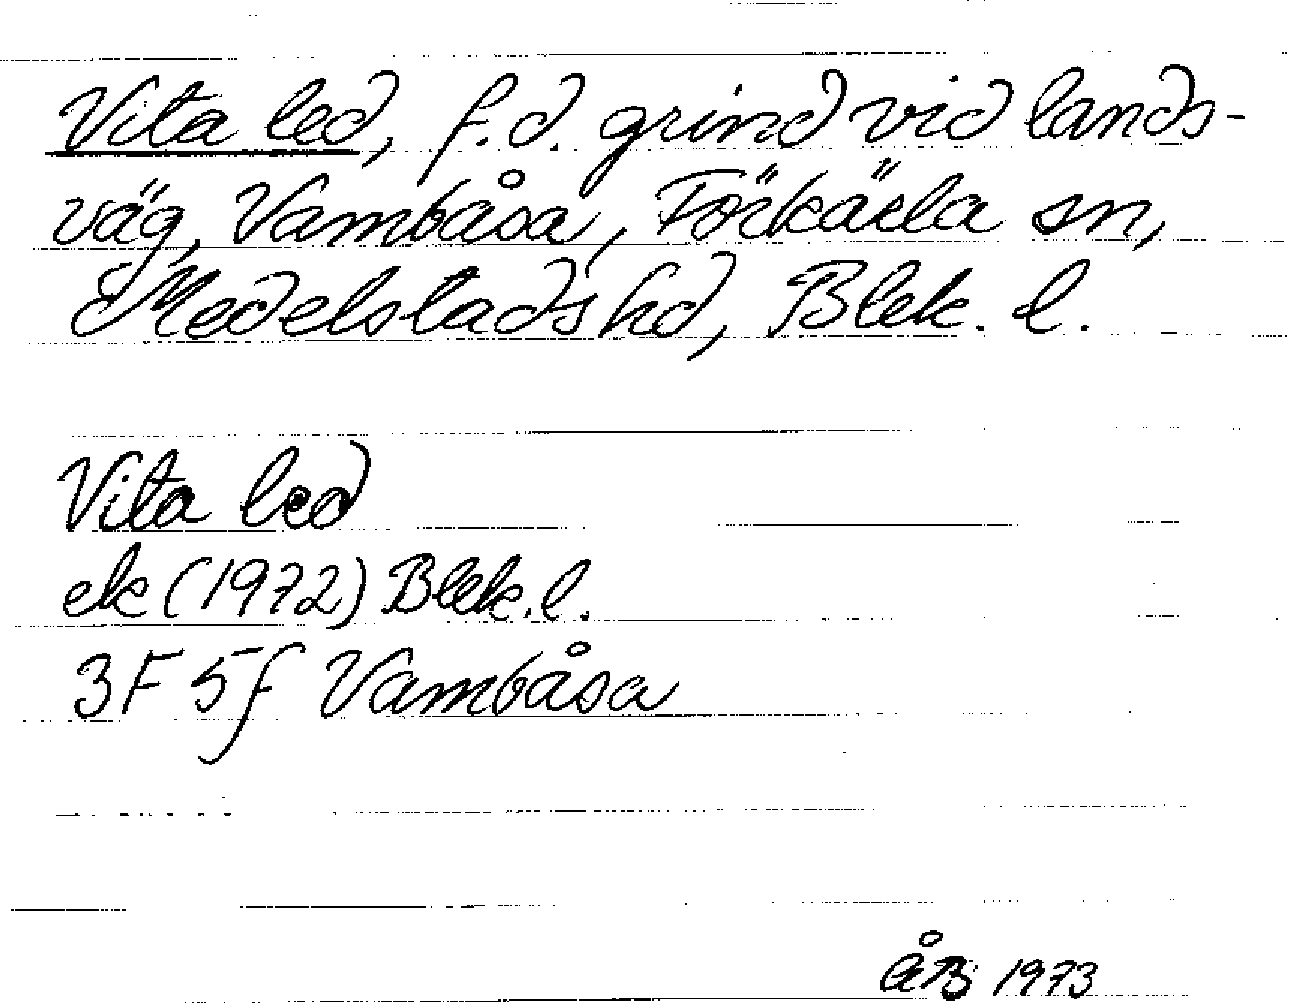 Vita led, f.d. grind vid lands-
väg, Vambåsa, Förkärla sn,
Medelstads hd, Blek. l.
Vita led
ek (1972) Blek. l.
3F 5f Vambåsa
ÅB 1973